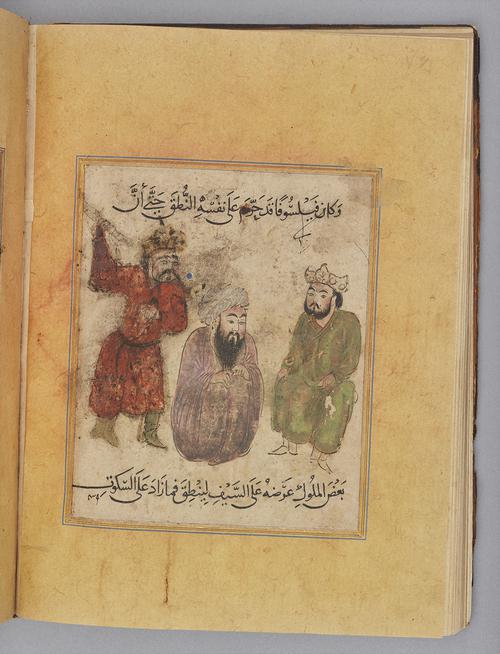 وَكَانَ فَيْلَسُوفًا قَد حَرَّمَ عَلَى نَفْسِهِ النُّطْقَ حَتَّى أَنَّ
بَعْضَ الملُوكِ عَرَضَهُ عَلَى السَّيْفِ لِيَنْطِقَ فَمَا زَادَ عَلَى السُّكُوتِ